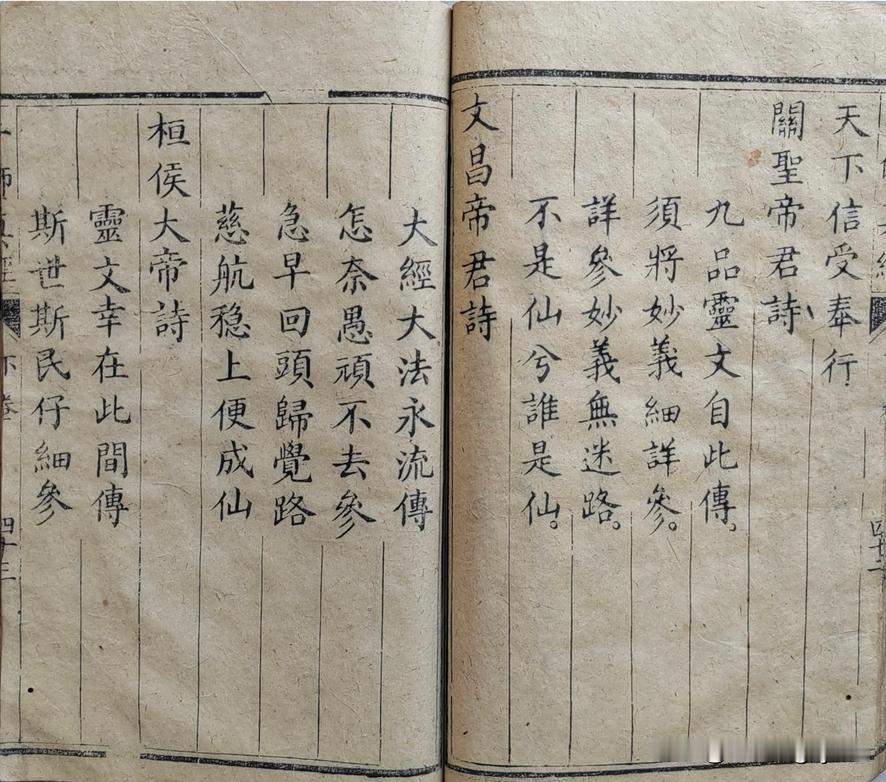 天下信受奉行
關聖帝君詩
九品靈文自此傳。
須將妙義細詳參。
詳參妙義無迷路。
不是仙兮誰是仙。
文昌帝君詩
大經大法永流傳
怎奈愚頑不去參
急早回頭歸覺路
慈航稳上便成仙
桓侯大帝詩
靈文幸在此間傳
斯世斯民仔細參
下卷
四十三
四十二